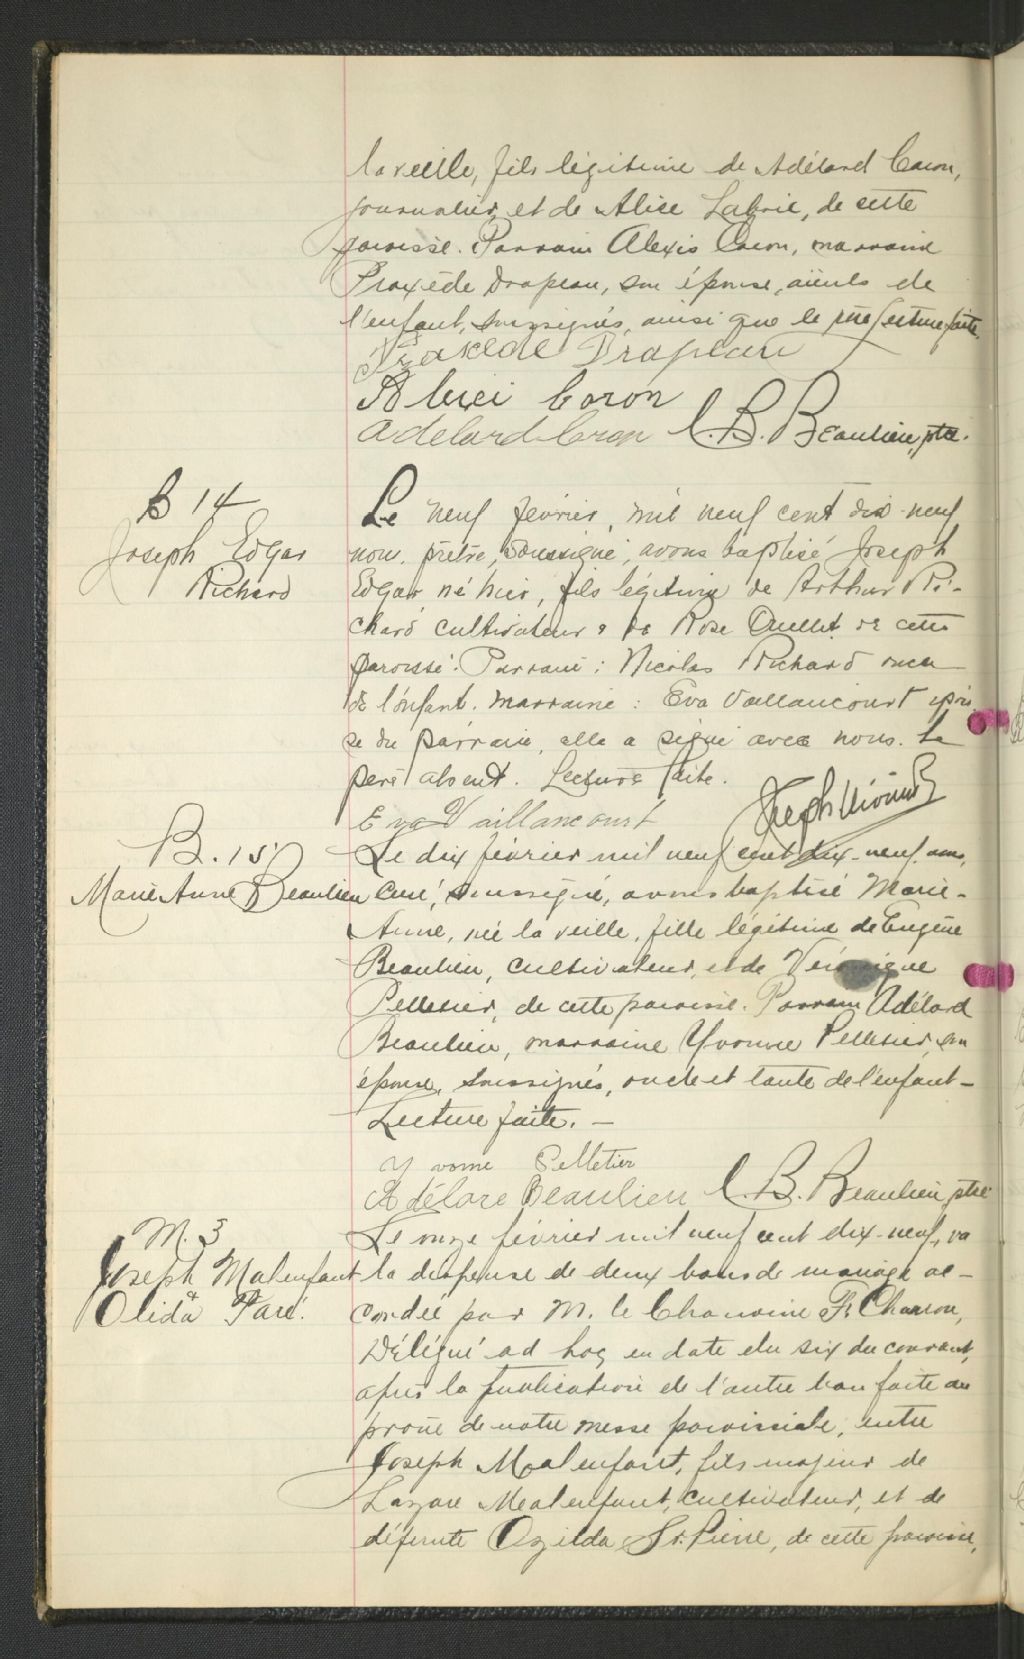 la veille, fils légitime de Adélard Caron,
journalier, et de Alice Labrie, de cette
paroisse. Parrain Alexis Caron, marraine
Praxède Drapeau, son épouse, aïeuls de
l'enfant, soussignés, ainsi que le père lecture faite.
Praxède Drapeau
Caron
Adelard Caron C. B. Beaulieu, ptre.
B 14
Joseph Edgar
Richard
Le neuf février, mil neuf cent dix-neuf
nous, prêtre, soussigné, avons baptisé Joseph
Edgar né hier, fils légitime de Arthur Ri-
chard cultivateur & de Rose Ouellet de cette
paroisse. Parrain : Nicolas Richard oncle
de l'enfant. marraine : Eva Vaillancourt épou
se du parrain, elle a signé avec nous. Le
père absent. Lecture faite.
Eva Vaillancourt Joseph
B. 15
Marie Anne Beaulieu
Le dix février mil neuf cent dix-neuf, nous,
curé, soussigné, avons baptisé Marie-
Anne, née la veille, fille légitime de Eugène
Beaulieu, cultivateur, et de Véronique
Pelletier, de cette paroisse. Parrain Adélard
Beaulieu, marraine Yvonne Pelletier, son
épouse, soussignés, oncle et tante de l'enfant-
Lecture faite. -
Yvonne Pelletier
Adélard Beaulieu C. B. Beaulieu ptre
M. 3
Joseph Malenfant
&
Olida Paré.
Le onze février mil neuf cent dix-neuf, vu
la dispense de deux bans de mariage ac-
cordée par M. le Chanoine F. Charron,
Délégué ad hoc, en date du six du courant,
après la publication de l'autre ban faite au
prône de notre messe paroissiale, entre
Joseph Malenfant, fils majeur de
Lazare Malenfant, cultivateur, et de
défunte Ozilda St. Pierre, de cette paroisse,